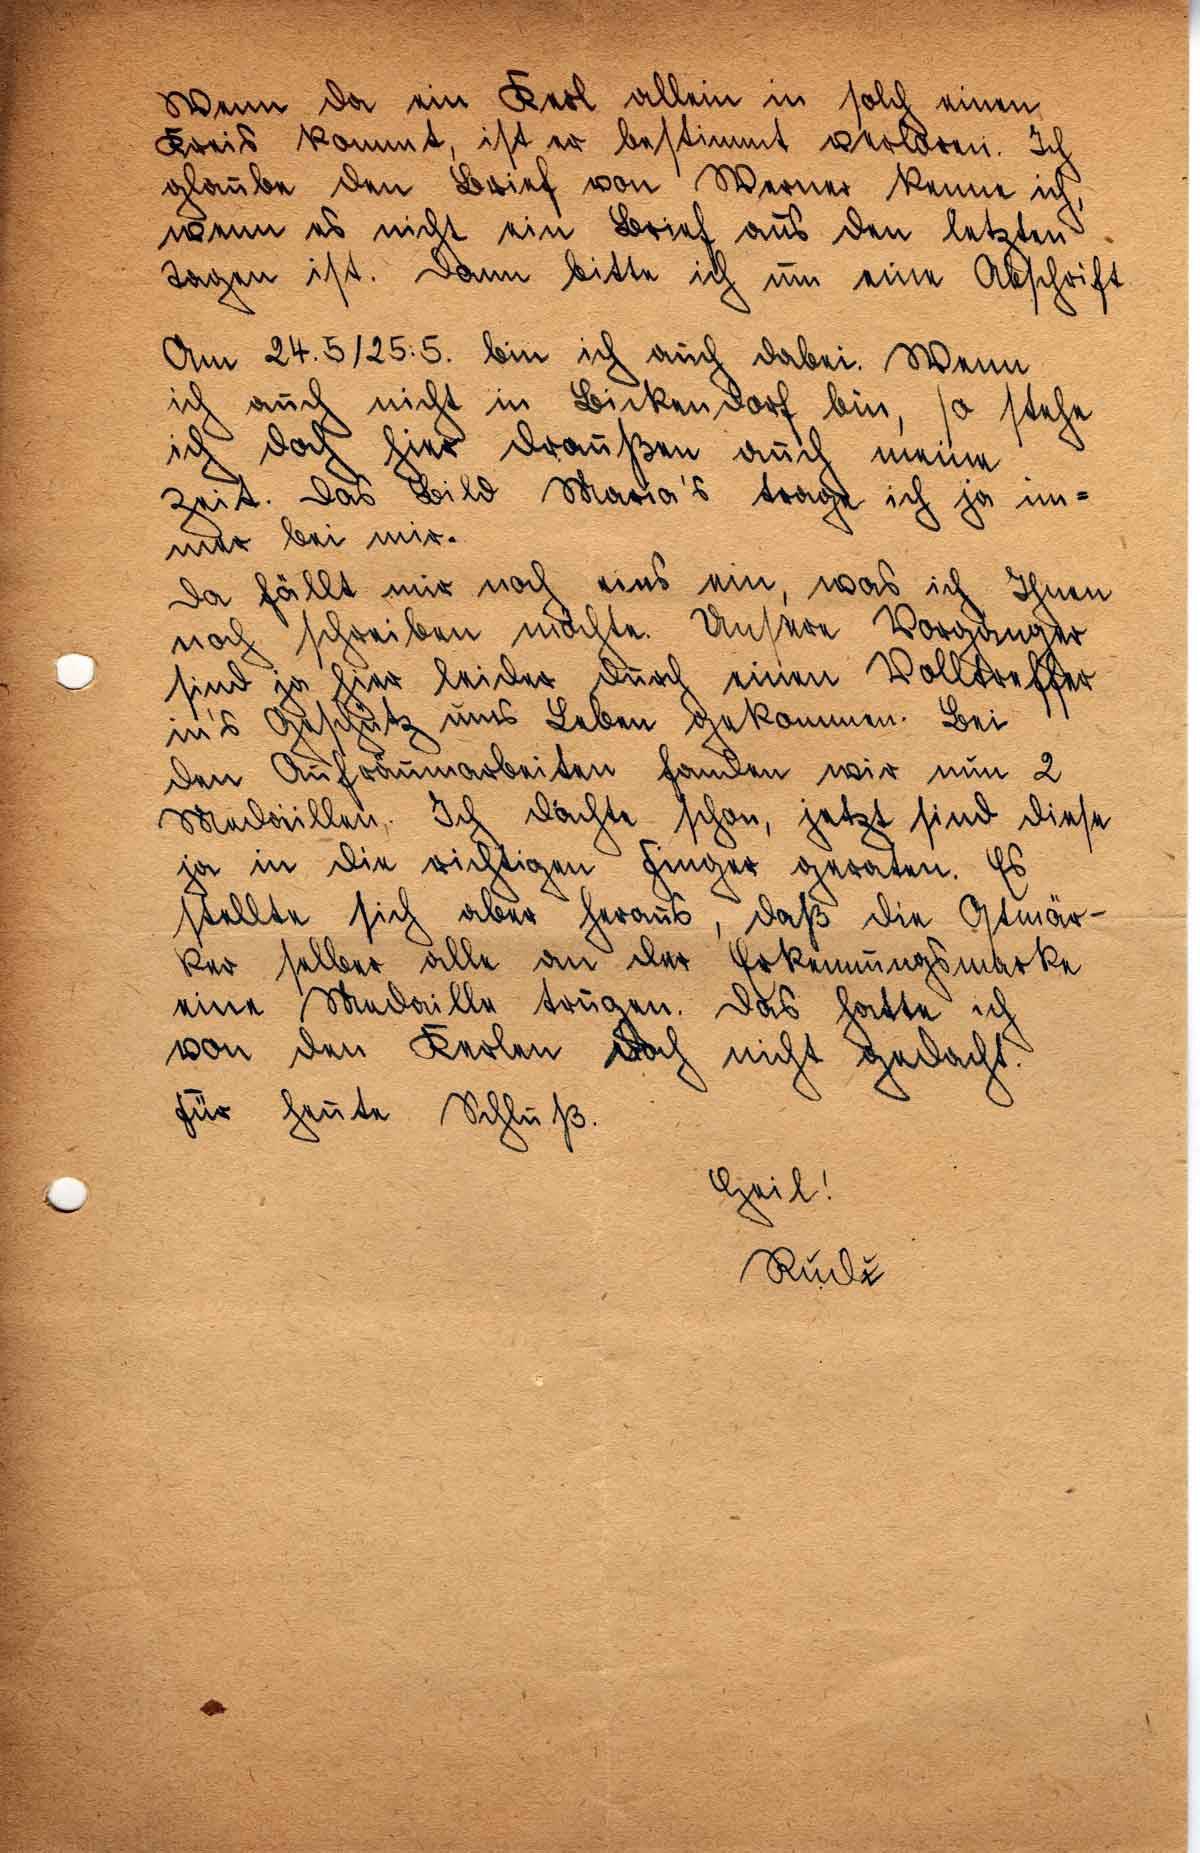 Wenn da ein Kerl allein in solch einen
Kreis kommt, ist er bestimmt verloren. Ich
glaube den Brief von Werner kenne ich,
wenn es nicht ein Brief aus den letzten
Tagen ist. Dann bitte ich um eine Abschrift
Am 24.5/25.5. bin ich auch dabei. Wenn
ich auch nicht in Bickendorf bin, so stehe
ich doch hier draußen auch meine
Zeit. Das Bild Maria's trage ich ja im=
mer bei mir.
Da fällt mir noch eins ein, was ich Ihnen
noch schreiben möchte. Unsere Vorgänger
sind ja hier leider durch einen Volltreffer
in's Geschütz ums Leben gekommen. Bei
den Aufräumarbeiten fanden wir nun 2
Medaillen. Ich dachte schon, jetzt sind diese
ja in die richtigen Finger geraten. Es
stellte sich aber heraus, daß die Ostmär-
ker selber alle an der Erkennungsmarke
eine Medaille trugen. Das hatte ich
von den Kerlen doch nicht gedacht.
Für heute Schluß.
Heil!
Rudi